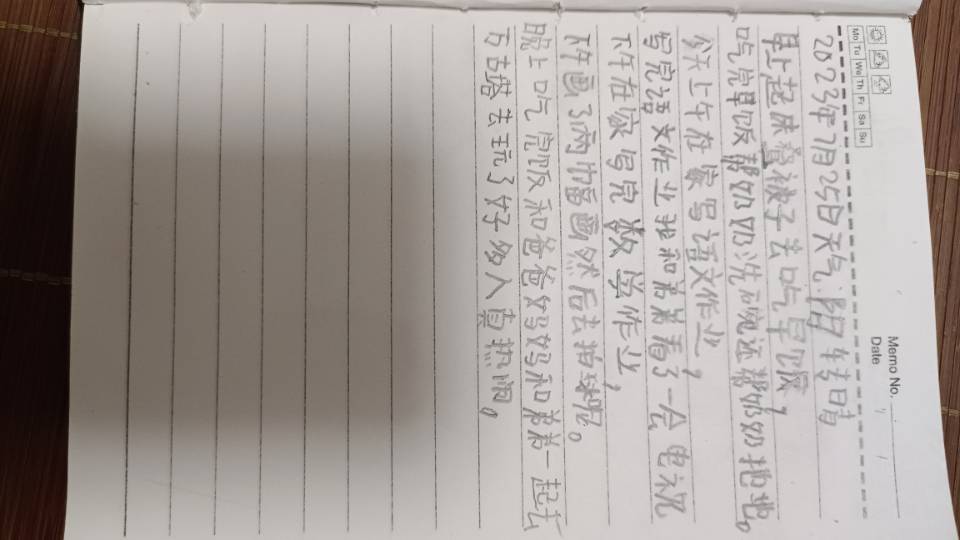 Memo No.
Date
Mo Tu We Th Fr Sa Su
2023年7月25日天气:阴转晴
早上起床叠被子去吃早饭,
吃完早饭帮奶奶洗碗还帮奶奶拖地。
今天上午在家写语文作业,
写完语文作业我和弟弟看了一会电视
下午在家写完数学作业,
阵画了两幅画然后去拍球呢。
晚上吃完饭和爸爸妈妈和弟弟一起去
万古塔去玩了好多人真热闹。